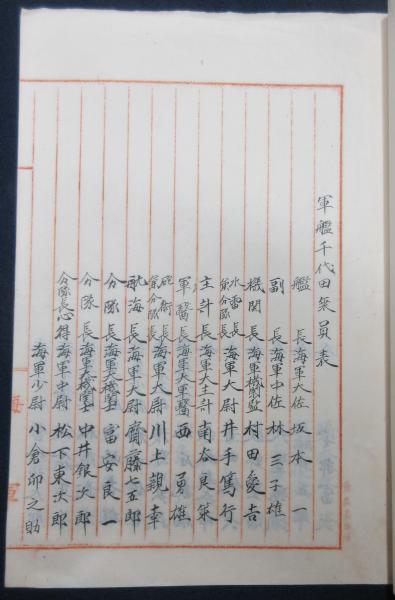 軍艦千代田乗員表
艦長 海軍大佐 坂本一
副長 海軍中佐 林三子雄
機関長 海軍機関監 村田愛吉
水雷長兼分隊長 海軍大尉 井手篤行
主計長 海軍大主計 南谷良策
軍醫長 海軍大軍醫 西勇雄
砲術長兼分隊長 海軍大尉 川上親幸
航海長 海軍大尉 齋藤七五郎
分隊長 海軍大機関士 富安良一
分隊長 海軍大機関士 中井銀次郎
分隊長心得 海軍中尉 松下東次郎
海軍少尉 小倉卯之助
海
軍